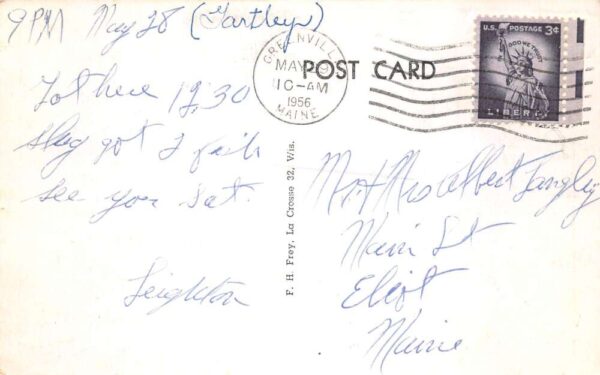 9 PM May 28 (Gartley)
Got here 12,30
Shag got 2 fish
See you Sat.
Leighton
GREENVILLE
MAY 29
10-AM
1956
MAINE
POST CARD
U.S. POSTAGE 3¢
IN GOD WE TRUST
LIBERTY
F. H. Frey, La Crosse 32, Wis.
Mr + Mrs Albert Langley
Main St
Eliot
Maine